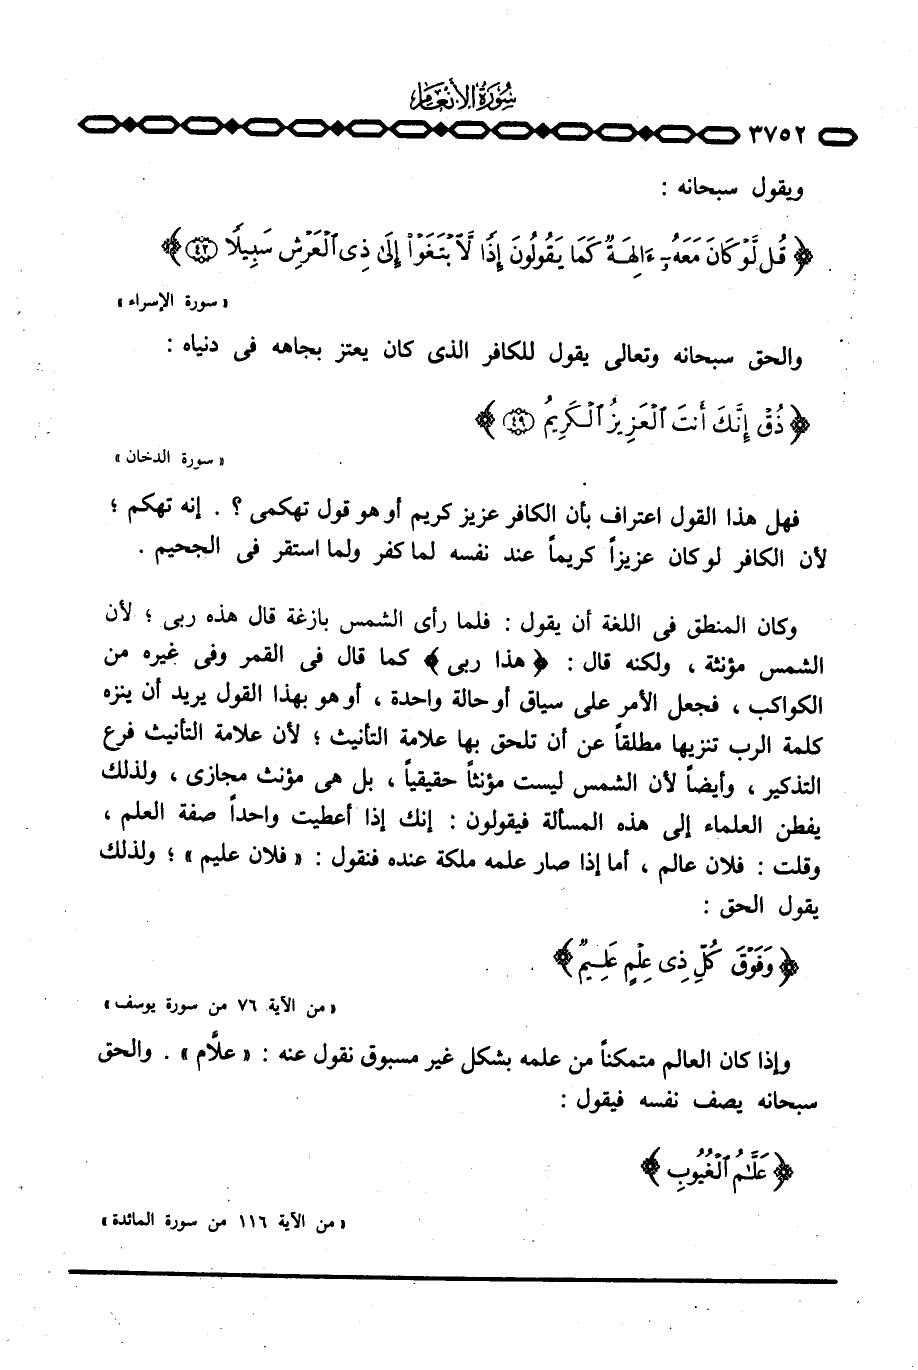 سُورَةُ الأَنْعَام
٣٧٥٢
ويقول سبحانه :
﴿ قُل لَّوْ كَانَ مَعَهُۥٓ ءَالِهَةٌ كَمَا يَقُولُونَ إِذًا لَّابْتَغَوْا۟ إِلَىٰ ذِى ٱلْعَرْشِ سَبِيلًا ٤٢ ﴾
« سورة الإسراء »
والحق سبحانه وتعالى يقول للكافر الذى كان يعتز بجاهه فى دنياه :
﴿ ذُقْ إِنَّكَ أَنتَ ٱلْعَزِيزُ ٱلْكَرِيمُ ٤٩ ﴾
« سورة الدخان »
فهل هذا القول اعتراف بأن الكافر عزيز كريم أو هو قول تهكمى ؟ . إنه تهكم ؛
لأن الكافر لو كان عزيزاً كريماً عند نفسه لما كفر ولما استقر فى الجحيم .
وكان المنطق فى اللغة أن يقول : فلما رأى الشمس بازغة قال هذه ربى ؛ لأن
الشمس مؤنثة ، ولكنه قال : ﴿ هذا ربى ﴾ كما قال فى القمر وفى غيره من
الكواكب ، فجعل الأمر على سياق أو حالة واحدة ، أو هو بهذا القول يريد أن ينزه
كلمة الرب تنزيها مطلقاً عن أن تلحق بها علامة التأنيث ؛ لأن علامة التأنيث فرع
التذكير ، وأيضاً لأن الشمس ليست مؤنثاً حقيقياً ، بل هى مؤنث مجازى ، ولذلك
يفطن العلماء إلى هذه المسألة فيقولون : إنك إذا أعطيت واحداً صفة العلم ،
وقلت : فلان عالم ، أما إذا صار علمه ملكة عنده فنقول : « فلان عليم » ؛ ولذلك
يقول الحق :
﴿ وَفَوْقَ كُلِّ ذِى عِلْمٍ عَلِيمٌ ﴾
« من الآية ٧٦ من سورة يوسف »
وإذا كان العالم متمكناً من علمه بشكل غير مسبوق نقول عنه : « علاَّم » . والحق
سبحانه يصف نفسه فيقول :
﴿ عَلَّٰمُ ٱلْغُيُوبِ ﴾
« من الآية ١١٦ من سورة المائدة »